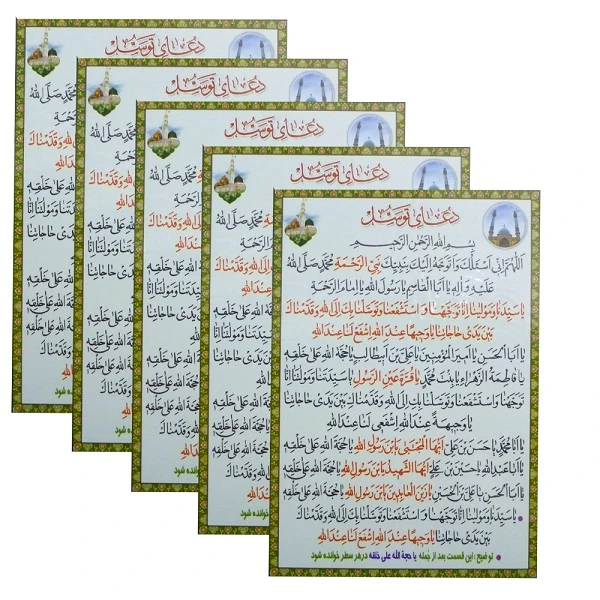 دعای توسل
بِسْمِ اللهِ الرَّحْمٰنِ الرَّحیمِ
اَللّهُمَّ اِنّی اَسْئَلُكَ وَ اَتَوَجَّهُ اِلَیْكَ بِنَبِیِّكَ نَبِیِّ الرَّحْمَةِ مُحَمَّدٍ صَلَّی اللهُ
عَلَیْهِ وَ الِهِ یا اَبَا الْقاسِمِ یا رَسُولَ اللهِ یا اِمامَ الرَّحْمَةِ
یا سَیِّدَنا وَ مَوْلینا اِنّا تَوَجَّهْنا وَ اسْتَشْفَعْنا وَ تَوَسَّلْنا بِكَ اِلَی اللهِ وَ قَدَّمْناكَ
بَیْنَ یَدَیْ حاجاتِنا یا وَجیهاً عِنْدَ اللهِ اِشْفَعْ لَنا عِنْدَ اللهِ
یا اَبَا الْحَسَنِ یا اَمیرَ الْمُؤْمِنینَ یا عَلِیَّ بْنَ اَبیطالِبٍ یا حُجَّةَ اللهِ عَلی خَلْقِهِ
یا فاطِمَةَ الزَّهْراءُ یا بِنْتَ مُحَمَّدٍ یا قُرَّةَ عَیْنِ الرَّسُولِ یا سَیِّدَتَنا وَ مَوْلاتَنا اِنّا
تَوَجَّهْنا وَ اسْتَشْفَعْنا وَ تَوَسَّلْنا بِكَ اِلَی اللهِ وَ قَدَّمْناكَ بَیْنَ یَدَیْ حاجاتِنا
یا وَجیهَةً عِنْدَ اللهِ اِشْفَعی لَنا عِنْدَ اللهِ
یا اَبا مُحَمَّدٍ یا حَسَنَ بْنَ عَلِیٍّ اَیُّهَا الْمُجْتَبی یَابْنَ رَسُولِ اللهِ یا حُجَّةَ اللهِ عَلی خَلْقِهِ
یا اَبا عَبْدِ اللهِ یا حُسَیْنَ بْنَ عَلِیٍّ اَیُّهَا الشَّهیدُ یَابْنَ رَسُولِ اللهِ یا حُجَّةَ اللهِ عَلی خَلْقِهِ
یا اَبَا الْحَسَنِ یا عَلِیَّ بْنَ الْحُسَیْنِ یا زَیْنَ الْعابِدینَ یَابْنَ رَسُولِ اللهِ یا حُجَّةَ اللهِ عَلی خَلْقِهِ
• یا سَیِّدَنا وَ مَوْلینا اِنّا تَوَجَّهْنا وَ اسْتَشْفَعْنا وَ تَوَسَّلْنا بِكَ اِلَی اللهِ وَ قَدَّمْناكَ
بَیْنَ یَدَیْ حاجاتِنا یا وَجیهاً عِنْدَ اللهِ اِشْفَعْ لَنا عِنْدَ اللهِ
• توضیح: این قسمت بعد از جمله یا حجة الله علی خلقه در هر سطر خوانده شود